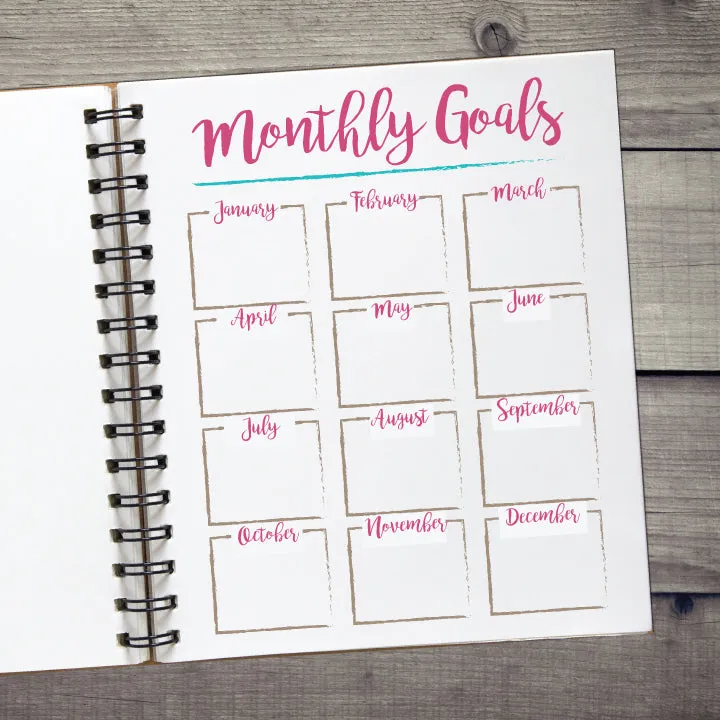 Monthly Goals
January February March
April May June
July August September
October November December